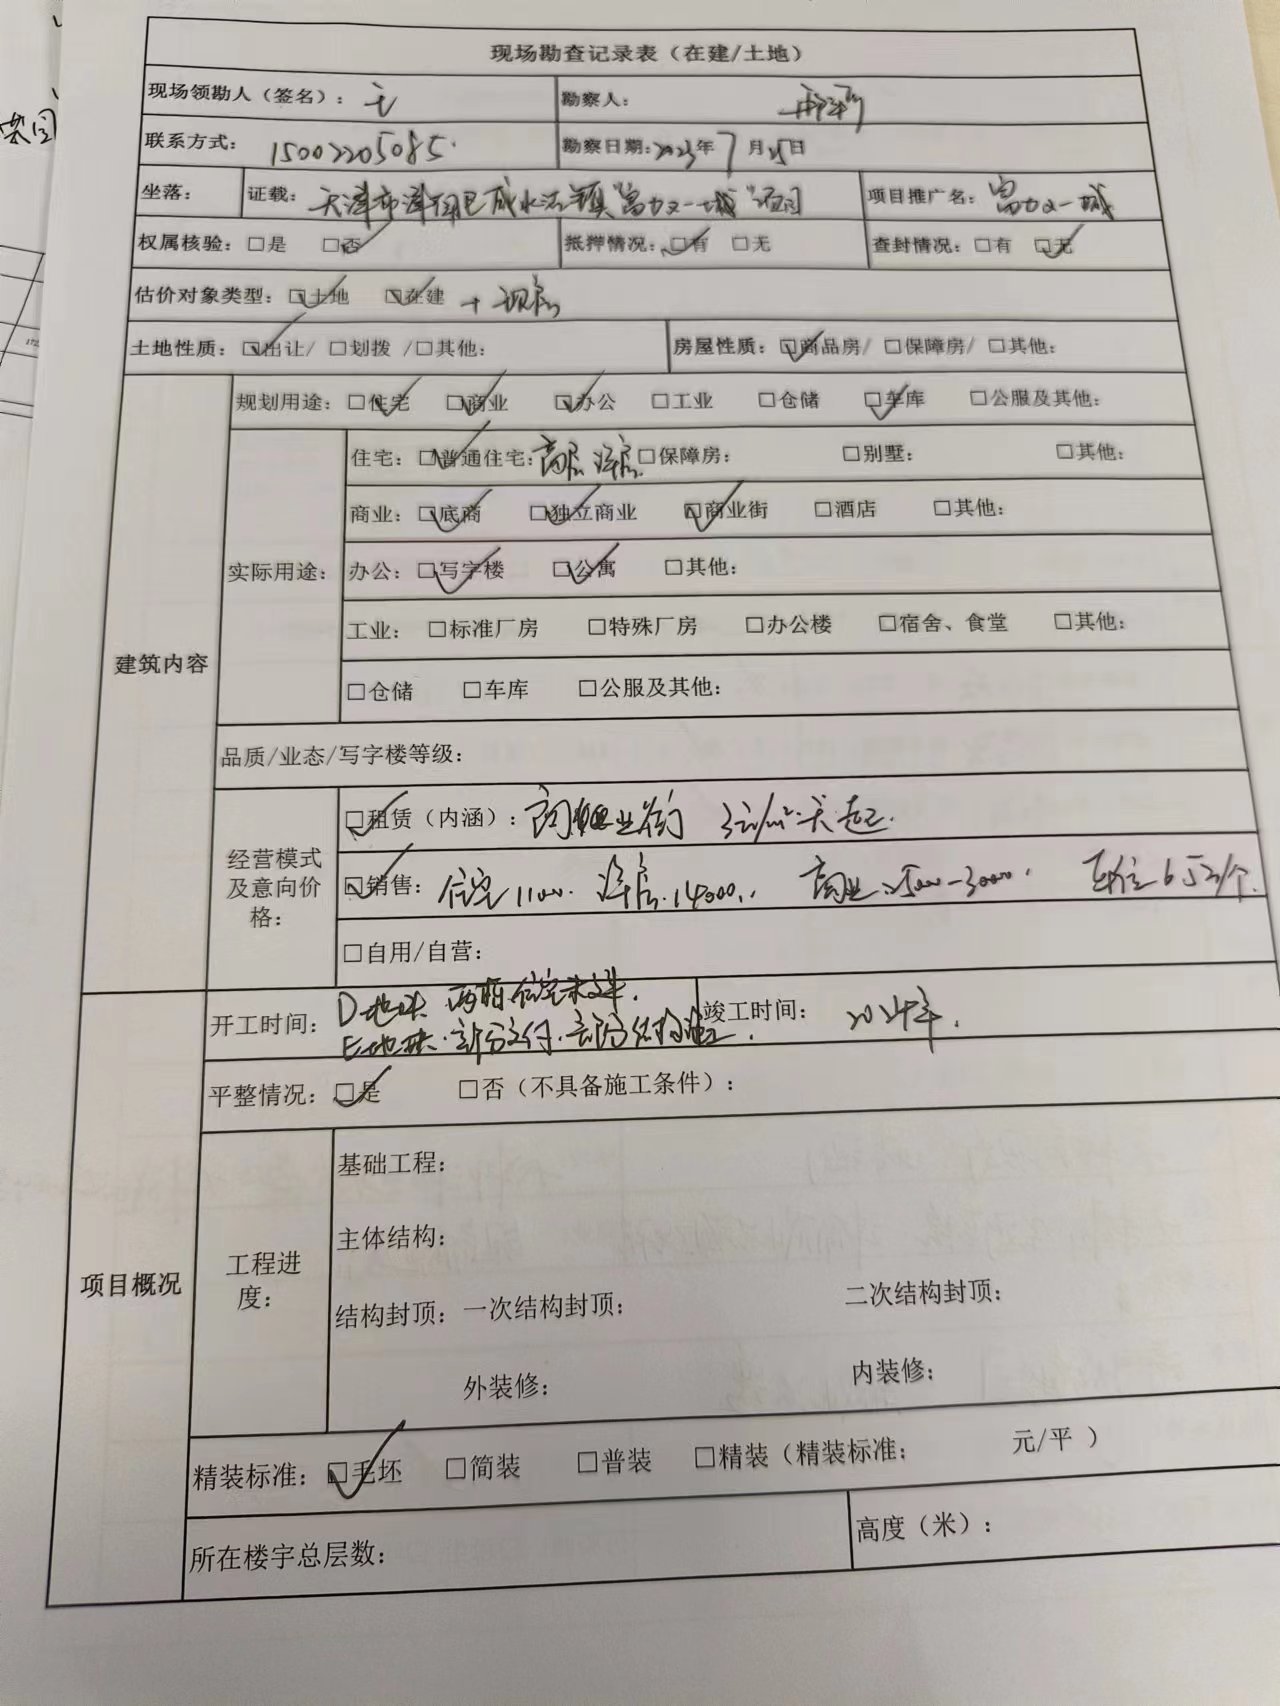 现场勘查记录表（在建/土地）
现场领勘人（签名）：无 勘察人：
联系方式：15002205085. 勘察日期：2023年7月25日
坐落： 证载：天津市津南区咸水沽镇"富力又一城"项目 项目推广名：富力又一城
权属核验：□是 ☑否 抵押情况：☑有 □无 查封情况：□有 ☑无
估价对象类型：☑土地 ☑在建 + 现房
土地性质：☑出让/ □划拨 /□其他： 房屋性质：☑商品房/ □保障房/ □其他：
建筑内容
规划用途：☑住宅 ☑商业 ☑办公 □工业 □仓储 ☑车库 □公服及其他：
实际用途：
住宅：☑普通住宅：高层 洋房 □保障房： □别墅： □其他：
商业：☑底商 ☑独立商业 ☑商业街 □酒店 □其他：
办公：☑写字楼 ☑公寓 □其他：
工业： □标准厂房 □特殊厂房 □办公楼 □宿舍、食堂 □其他：
□仓储 □车库 □公服及其他：
品质/业态/写字楼等级：
经营模式及意向价格：
☑租赁（内涵）：商业街 3元/㎡·天起.
☑销售：住宅11000. 洋房.14000.. 商业25000-30000. 车位6万元/个.
□自用/自营：
项目概况
开工时间：D地块 两栋住宅未交付.
E地块.部分交付.部分结构施工.
竣工时间： 2024年.
平整情况：☑是 □否（不具备施工条件）：
工程进度：
基础工程：
主体结构：
结构封顶：一次结构封顶： 二次结构封顶：
外装修： 内装修：
精装标准：☑毛坯 □简装 □普装 □精装（精装标准： 元/平 ）
所在楼宇总层数： 高度（米）：